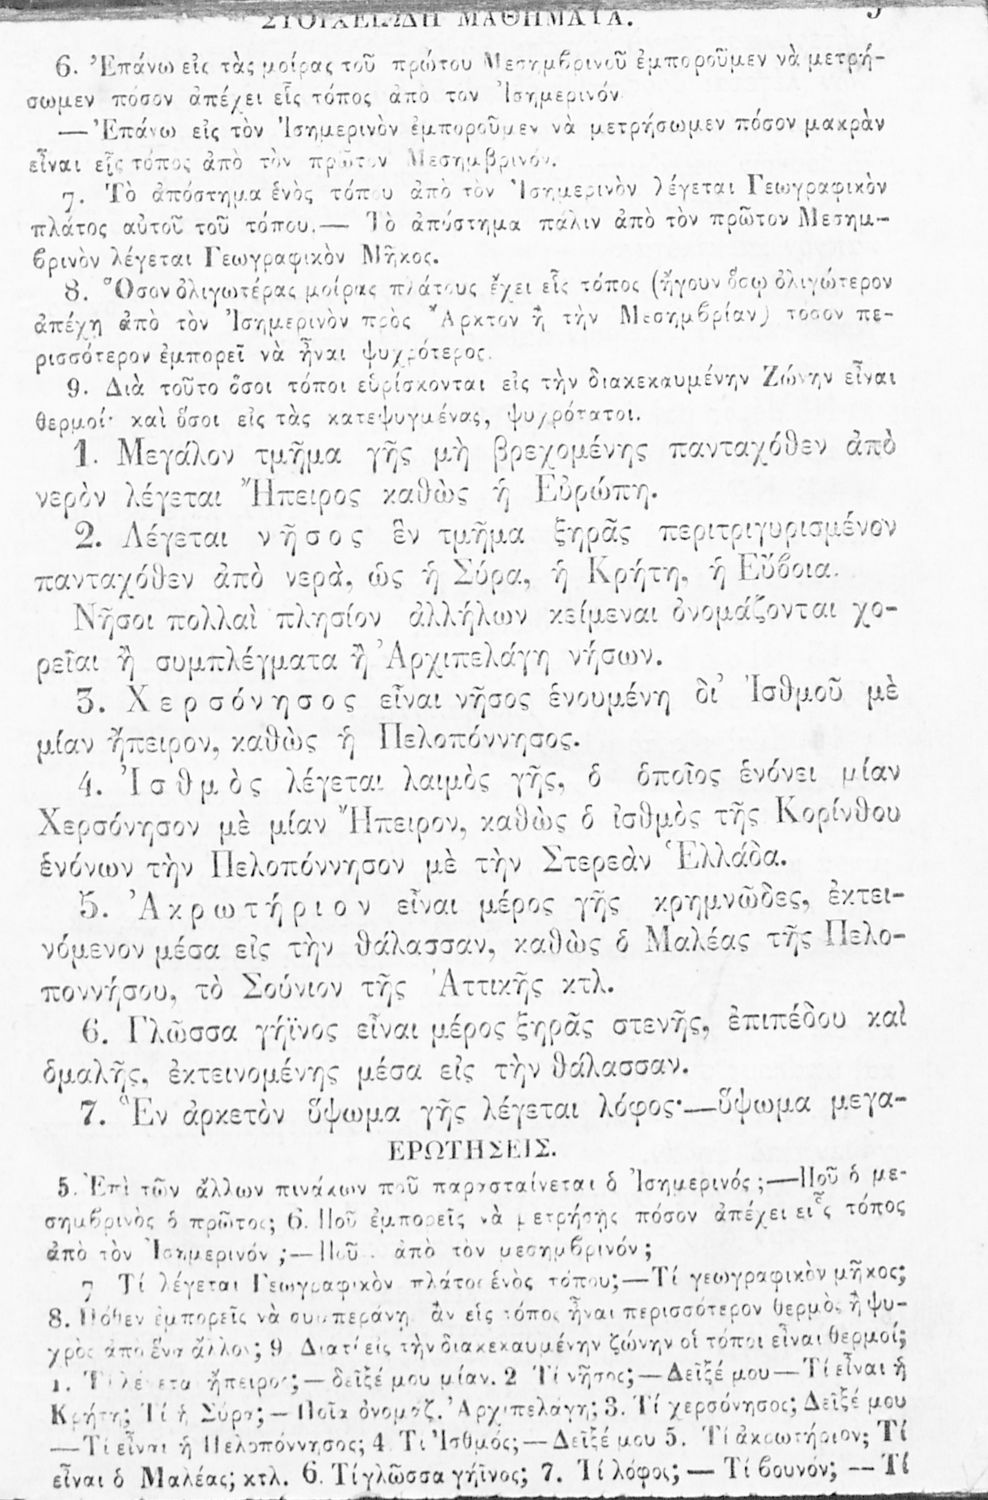 ΣΤΟΙΧΕΙΩΔΗ ΜΑΘΗΜΑΤΑ.
6. Ἐπάνω εἰς τὰς μοίρας τοῦ πρώτου Μεσημβρινοῦ ἐμποροῦμεν νὰ μετρή-
σωμεν πόσον ἀπέχει εἷς τόπος ἀπὸ τον Ἰσημερινόν
—Ἐπάνω εἰς τὸν Ἰσημερινὸν ἐμποροῦμεν νὰ μετρήσωμεν πόσον μακρὰν
εἶναι εἷς τόπος ἀπὸ τὸν πρῶτον Μεσημβρινόν.
7. Τὸ ἀπόστημα ἑνὸς τόπου ἀπὸ τὸν Ἰσημερινὸν λέγεται Γεωγραφικὸν
πλάτος αὐτοῦ τοῦ τόπου.— Τὸ ἀπόστημα πάλιν ἀπὸ τὸν πρῶτον Μεσημ-
βρινὸν λέγεται Γεωγραφικὸν Μῆκος.
8. Ὅσον ὀλιγωτέρας μοίρας πλάτους ἔχει εἷς τόπος (ἤγουν ὅσῳ ὀλιγώτερον
ἀπέχῃ ἀπὸ τὸν Ἰσημερινὸν πρὸς Ἄρκτον ἢ τὴν Μεσημβρίαν) τόσον πε-
ρισσότερον ἐμπορεῖ νὰ ἦναι ψυχρότερος.
9. Διὰ τοῦτο ὅσοι τόποι εὑρίσκονται εἰς τὴν διακεκαυμένην Ζώνην εἶναι
θερμοί· καὶ ὅσοι εἰς τὰς κατεψυγμένας, ψυχρότατοι.
1. Μεγάλον τμῆμα γῆς μὴ βρεχομένης πανταχόθεν ἀπὸ
νερὸν λέγεται Ἤπειρος καθὼς ἡ Εὐρώπη.
2. Λέγεται νῆσος ἓν τμῆμα ξηρᾶς περιτριγυρισμένον
πανταχόθεν ἀπὸ νερὰ, ὡς ἡ Σύρα, ἡ Κρήτη, ἡ Εὔβοια.
Νῆσοι πολλαὶ πλησίον ἀλλήλων κείμεναι ὀνομάζονται χο-
ρεῖαι ἢ συμπλέγματα ἢ Ἀρχιπελάγη νήσων.
3. Χερσόνησος εἶναι νῆσος ἑνουμένη δι' Ἰσθμοῦ μὲ
μίαν ἤπειρον, καθὼς ἡ Πελοπόννησος.
4. Ἰσθμὸς λέγεται λαιμὸς γῆς, ὁ ὁποῖος ἑνόνει μίαν
Χερσόνησον μὲ μίαν Ἤπειρον, καθὼς ὁ ἰσθμὸς τῆς Κορίνθου
ἑνόνων τὴν Πελοπόννησον μὲ τὴν Στερεὰν Ἑλλάδα.
5. Ἀκρωτήριον εἶναι μέρος γῆς κρημνῶδες, ἐκτει-
νόμενον μέσα εἰς τὴν θάλασσαν, καθὼς ὁ Μαλέας τῆς Πελο-
ποννήσου, τὸ Σούνιον τῆς Ἀττικῆς κτλ.
6. Γλῶσσα γήϊνος εἶναι μέρος ξηρᾶς στενῆς, ἐπιπέδου καὶ
ὁμαλῆς, ἐκτεινομένης μέσα εἰς τὴν θάλασσαν.
7. Ἓν ἀρκετὸν ὕψωμα γῆς λέγεται λόφος·—ὕψωμα μεγα-
ΕΡΩΤΗΣΕΙΣ.
5. Ἐπὶ τῶν ἄλλων πινάκων ποῦ παρασταίνεται ὁ Ἰσημερινός;—Ποῦ ὁ με-
σημβρινὸς ὁ πρῶτος; 6. Ποῦ ἐμπορεῖς νὰ μετρήσῃς πόσον ἀπέχει εἷς τόπος
ἀπὸ τὸν Ἰσημερινόν;—Ποῦ . ἀπὸ τὸν μεσημβρινόν;
7 Τί λέγεται Γεωγραφικὸν πλάτος ἑνὸς τόπου;—Τί γεωγραφικὸν μῆκος;
8. Πόθεν ἐμπορεῖς νὰ συμπεράνῃ ἂν εἷς τόπος ἦναι περισσότερον θερμὸς ἢ ψυ-
χρὸς ἀπὸ ἕνα ἄλλον; 9 Διατί εἰς τὴν διακεκαυμένην ζώνην οἱ τόποι εἶναι θερμοί;
1. Τί λέγεται ἤπειρος;—δεῖξέ μου μίαν. 2 Τί νῆσος;—Δεῖξέ μου—Τί εἶναι ἡ
Κρήτη; Τί ἡ Σύρα;—Ποῖα ὀνομάζ. Ἀρχιπελάγη; 3. Τί χερσόνησος; Δεῖξέ μου
—Τί εἶναι ἡ Πελοπόννησος; 4 Τι Ἰσθμός;—Δεῖξέ μου 5. Τί ἀκρωτήριον; Τί
εἶναι ὁ Μαλέας; κτλ. 6. Τί γλῶσσα γήϊνος; 7. Τί λόφος;— Τί βουνόν; —Τί